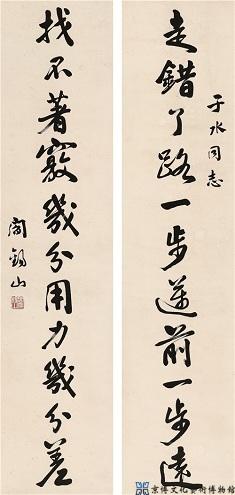 于水同志
走錯了路一步進前一步遠
找不著竅幾分用力幾分差
閻錫山
京博文化藝術博物館